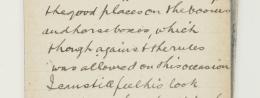 the good places on the booms
and horse boxes, which
though against the rules
was allowed on this occasion
I can still feel his look